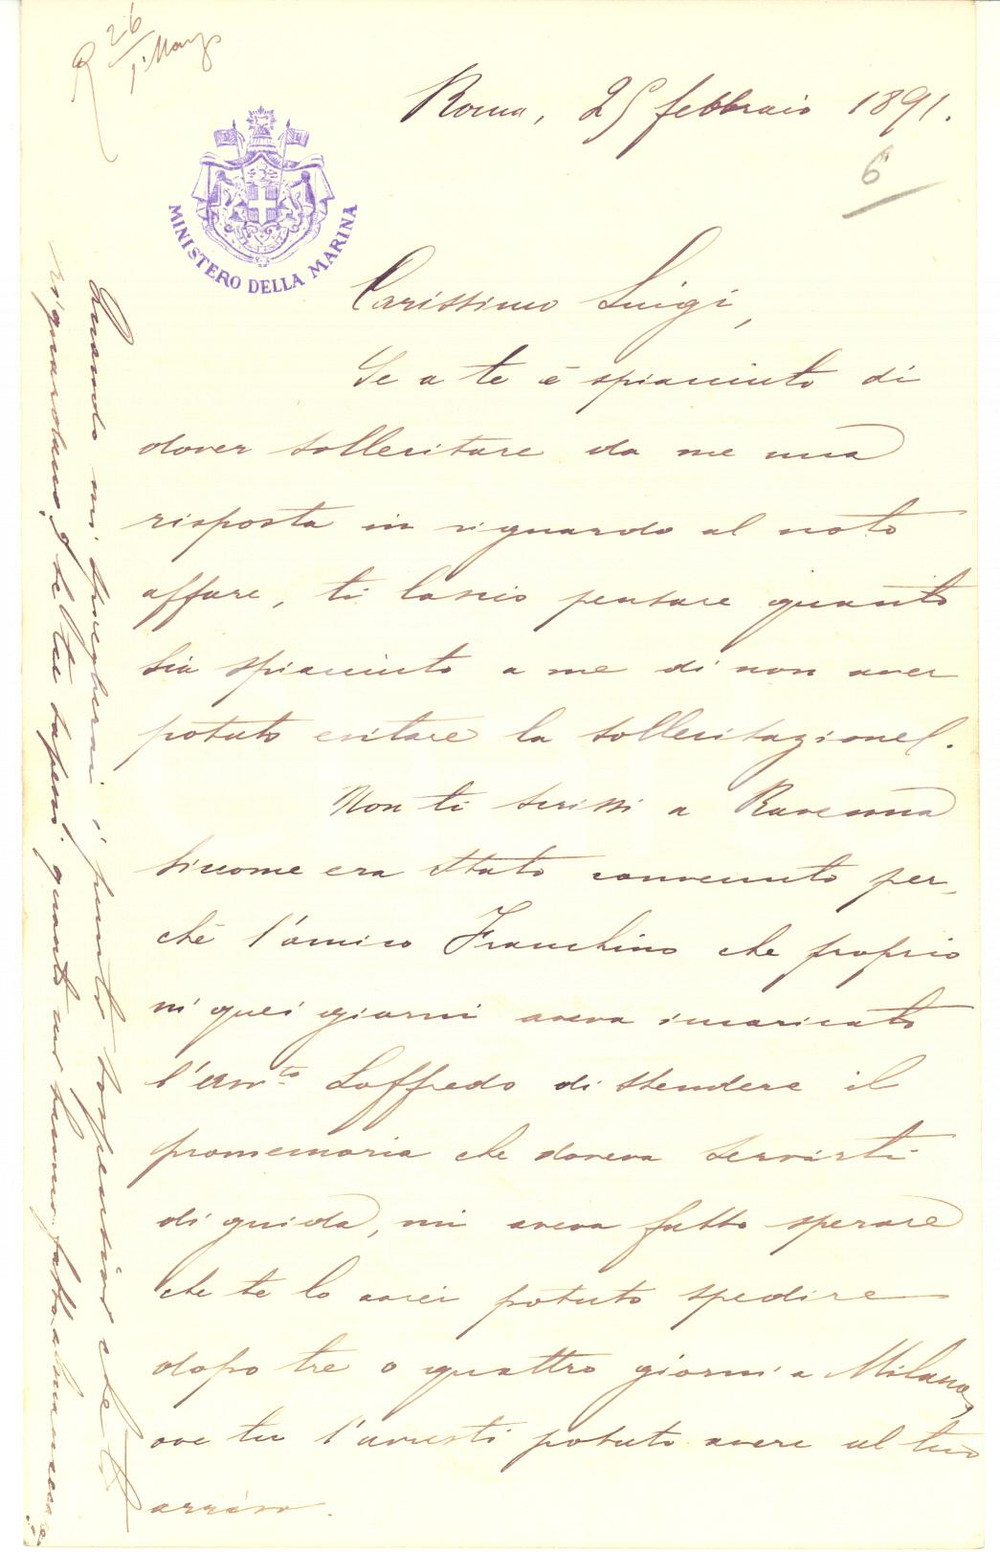 R 26/1° Marzo
Roma, 25 febbraio 1891.
6
MINISTERO DELLA MARINA
Carissimo Luigi,
Se a te è spiacciuto di
dover sollecitare da me una
risposta in riguardo al noto
affare, ti lascio pensare quanto
sia spiacciuto a me di non aver
potuto evitare la sollecitazione.
Non ti scrissi a Ravenna
siccome era stato convenuto per-
chè l'amico Franchino che proprio
in quei giorni aveva incaricato
l'avv.to Loffredo di stendere il
promemoria che doveva servirti
di guida, mi aveva fatto sperare
che te lo avrei potuto spedire
dopo tre o quattro giorni a Milano,
ove tu l'avresti potuto avere al tuo
arrivo.
Quando mi i punti che ti
riguardano, se tu sapessi quanto mi hanno fatto